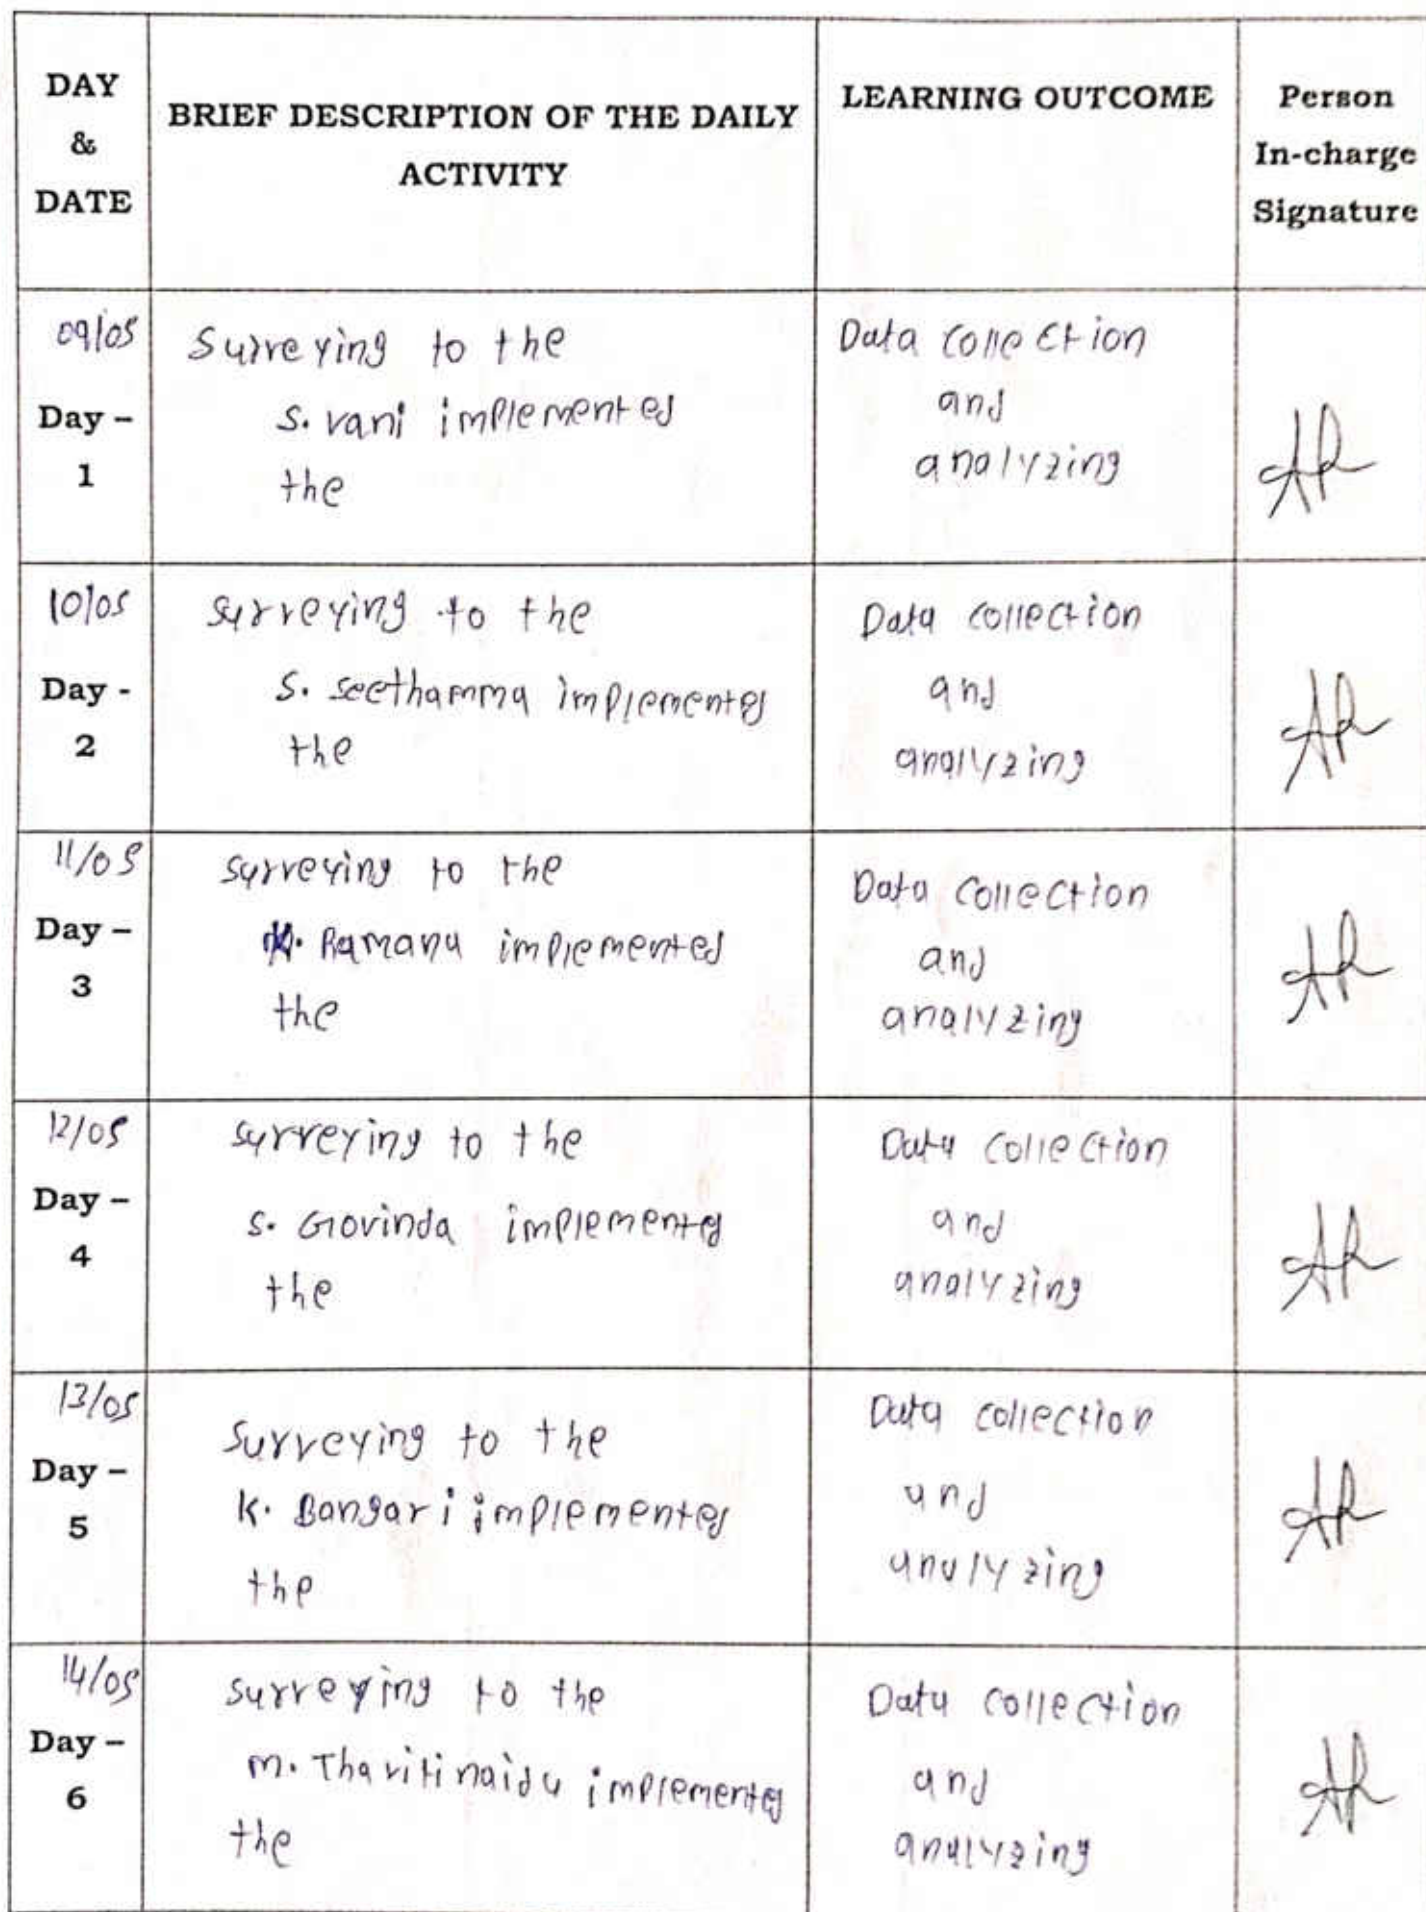 DAY
&
DATE
BRIEF DESCRIPTION OF THE DAILY
ACTIVITY
LEARNING OUTCOME
Person
In-charge
Signature
09/05
Day –
1
Surveying to the
S. vani implemented
the
Data collection
and
analyzing
10/05
Day -
2
surveying to the
S. seethamma implemented
the
Data collection
and
analyzing
11/05
Day –
3
surveying to the
Ramana implemented
the
Data collection
and
analyzing
12/05
Day –
4
surveying to the
S. Govinda implemented
the
Data collection
and
analyzing
13/05
Day –
5
Surveying to the
K. Bangari implemented
the
Data collection
and
analyzing
14/05
Day –
6
surveying to the
m. Thavitinaidu implemented
the
Data collection
and
analyzing